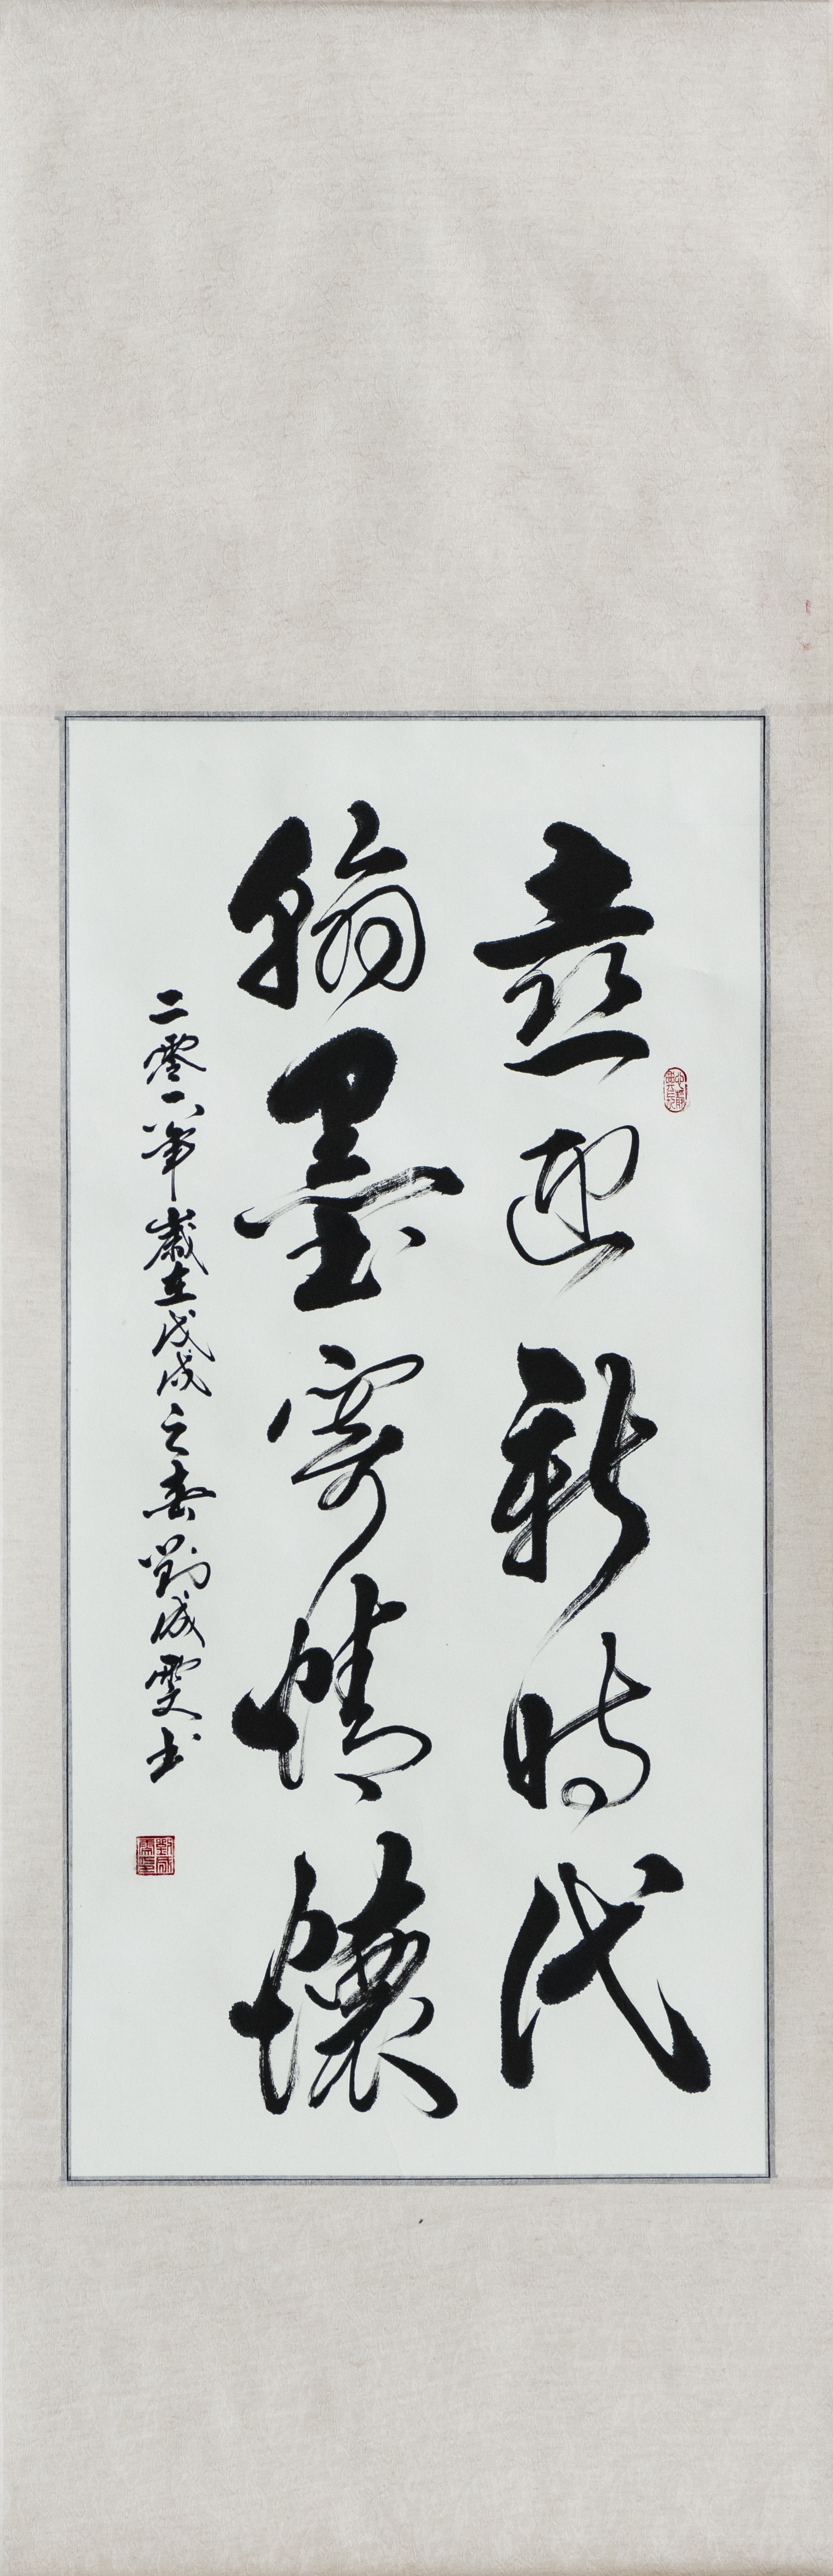 喜迎新时代
翰墨寄情懷
二零一八年歲在戊戌之春劉成雯书